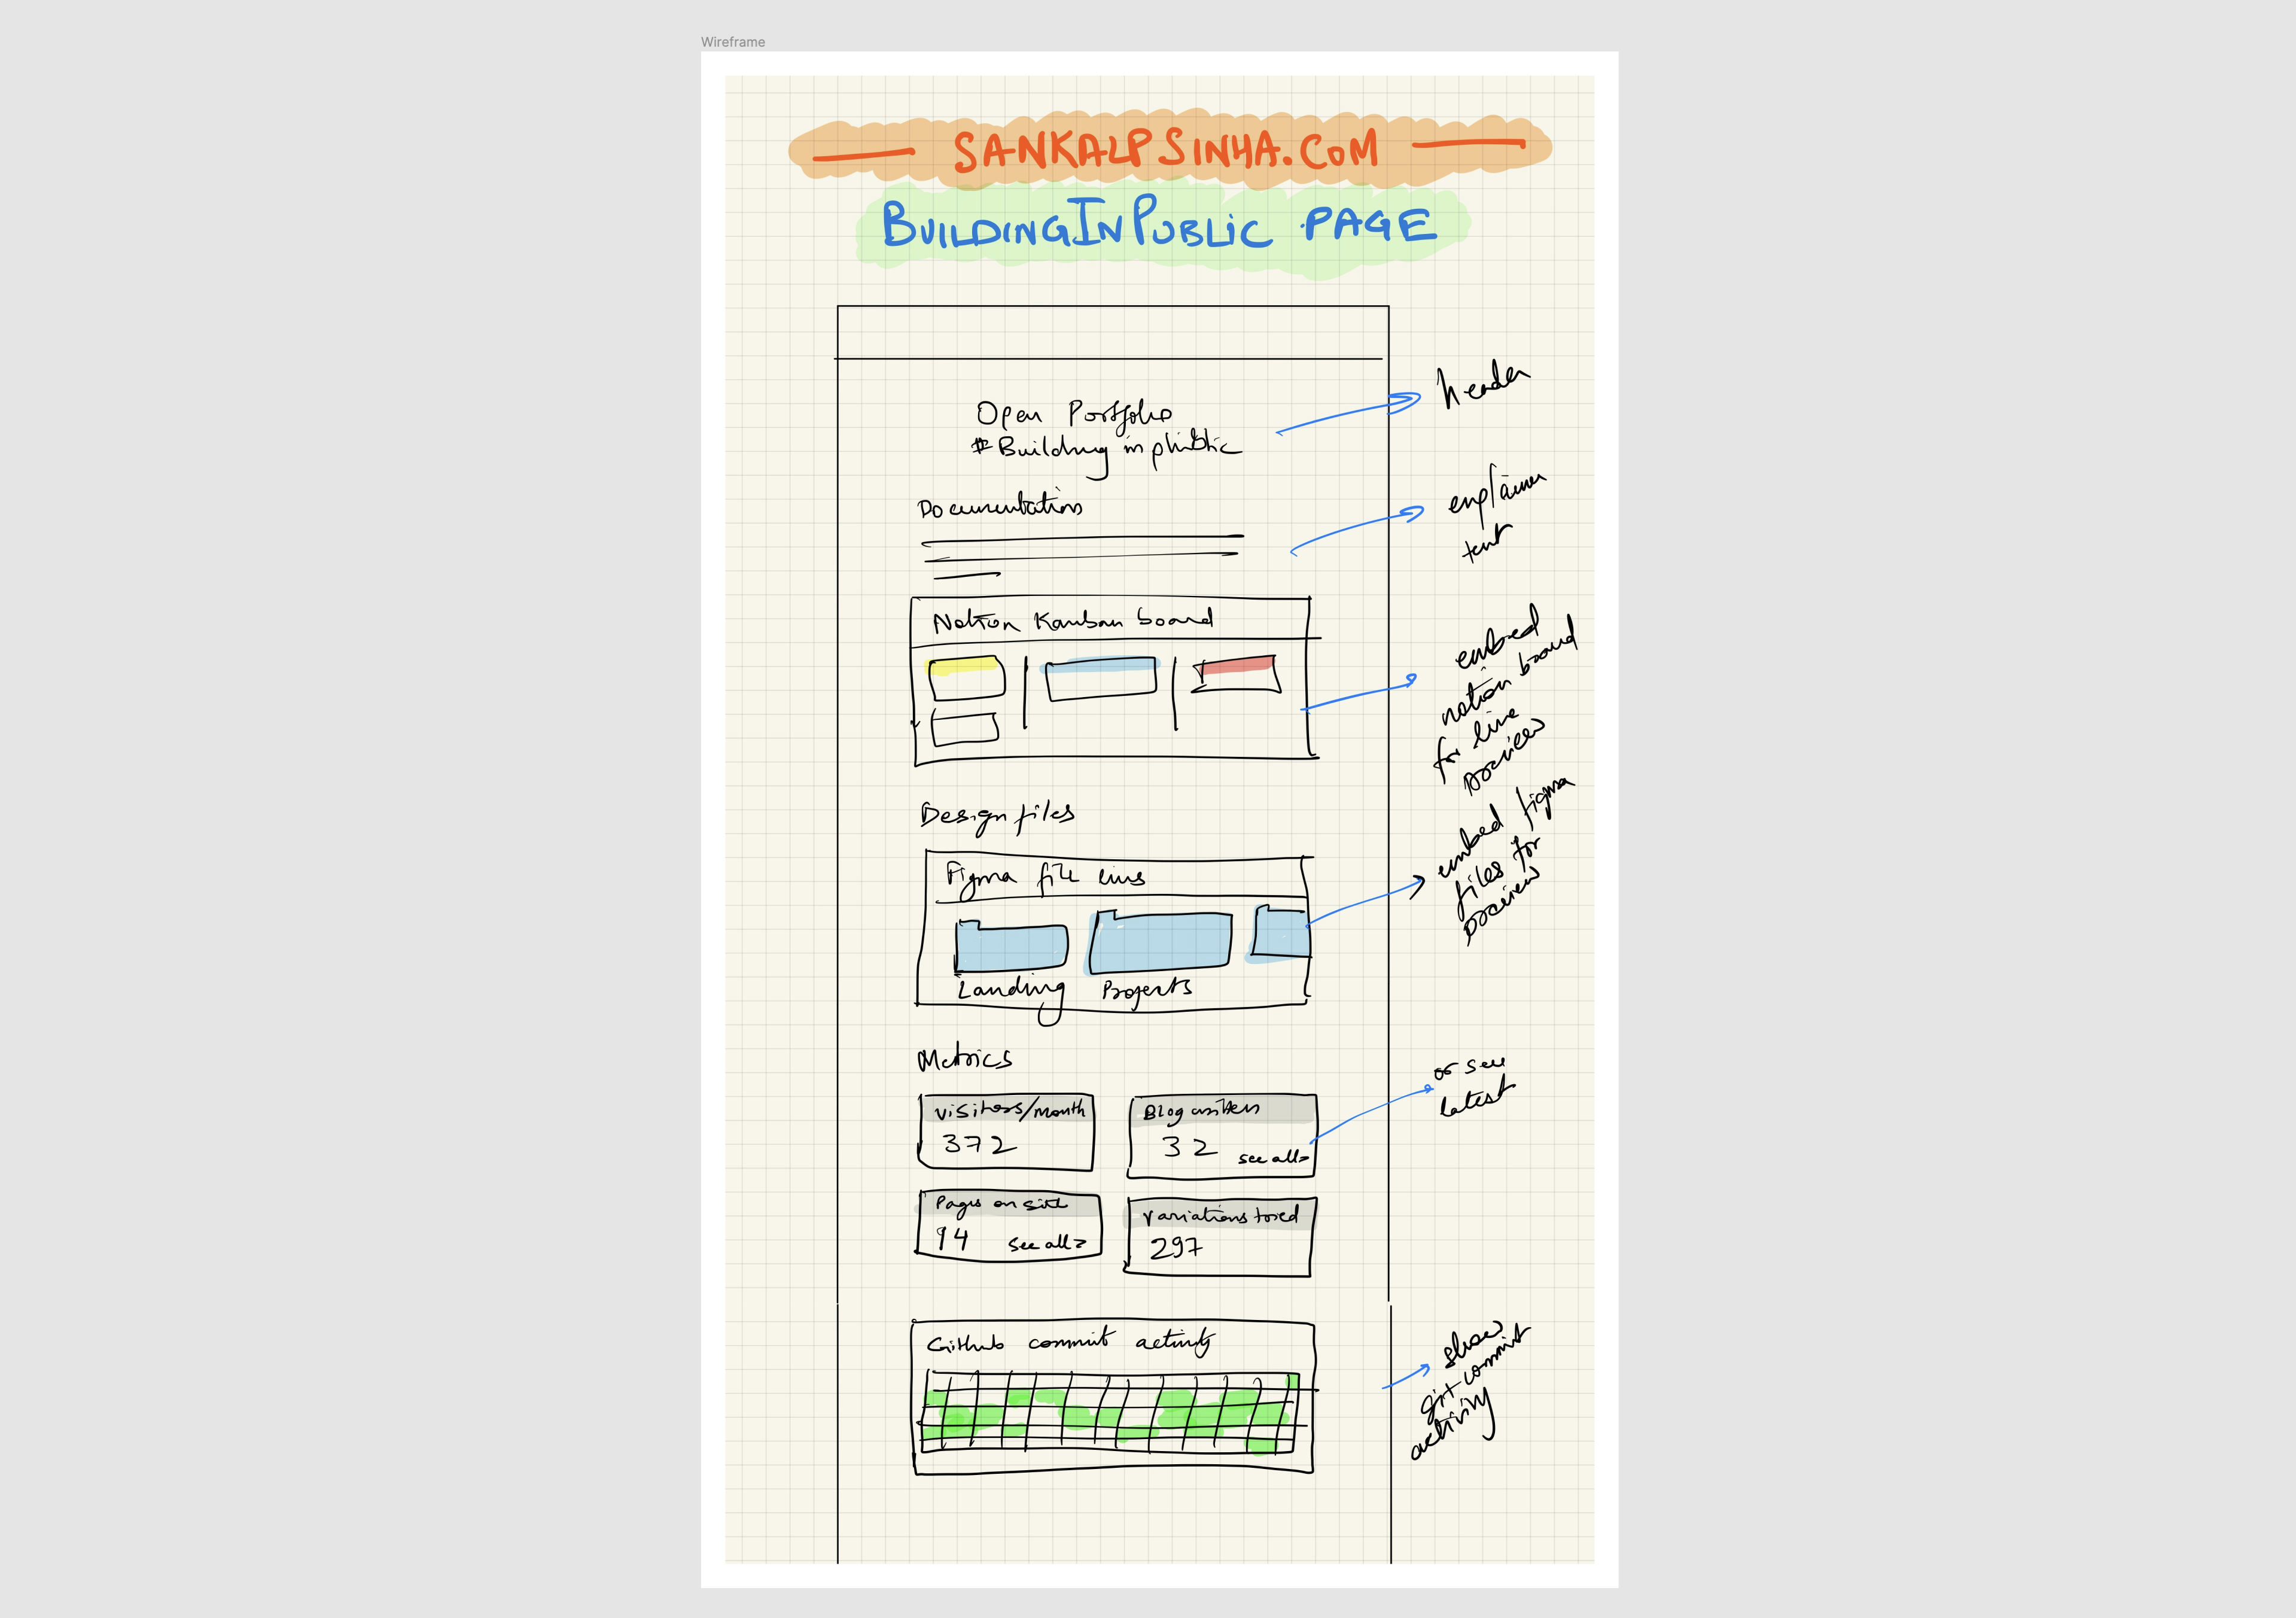 Wireframe
SANKALPSINHA.COM
BUILDINGINPUBLIC PAGE
Open Portfolio
#Building in public
header
Documentation
explainer
text
Notion Kanban board
embed
notion board
for live
preview
Design files
Figma file
embed figma
files for
preview
Landing
Projects
Metrics
visitors/month
372
Blog written
32
see all>
or see
latest
Pages on site
94
see all>
variations tried
297
Github commit activity
show
git commit
activity